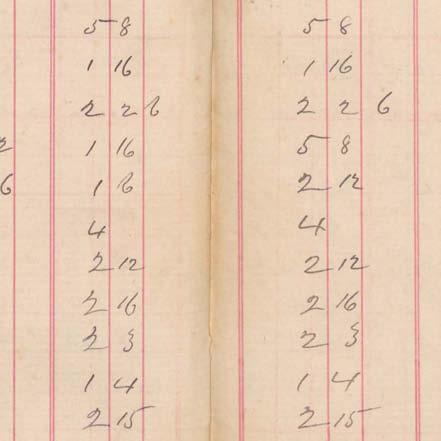 5 8 5 8
1 16 1 16
2 2 6 2 2 6
2 1 16 5 8
6 1 6 2 12
4 4
2 12 2 12
2 16 2 16
2 3 2 3
1 4 1 4
2 15 2 15